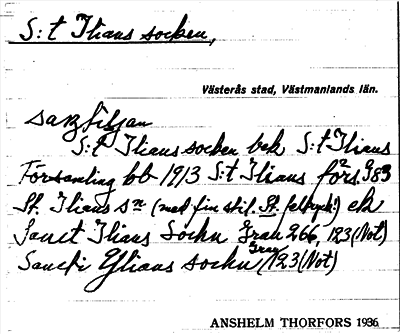 S:t Ilians socken,
Västerås stad, Västmanlands län.
sazŋfiljan
S:t Ilians socken bek S:t Ilians
Församling bb 1913 S:t Ilians förs. G83
St. Ilians sn (med fin stil. St. feltryck!) ek
Sanct Ilians Sockn Grau 266, 123 (Not)
Sancti Yllians sockn Grau 123 (Not)
ANSHELM THORFORS 1936